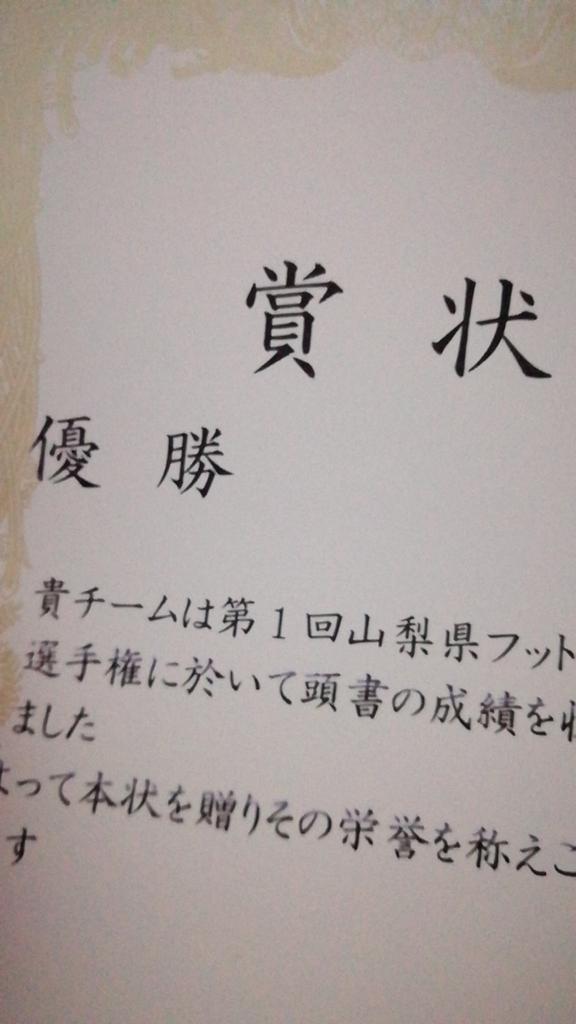 賞状
優勝
貴チームは第1回山梨県フット
選手権に於いて頭書の成績を
ました
よって本状を贈りその栄誉を称えこ
す